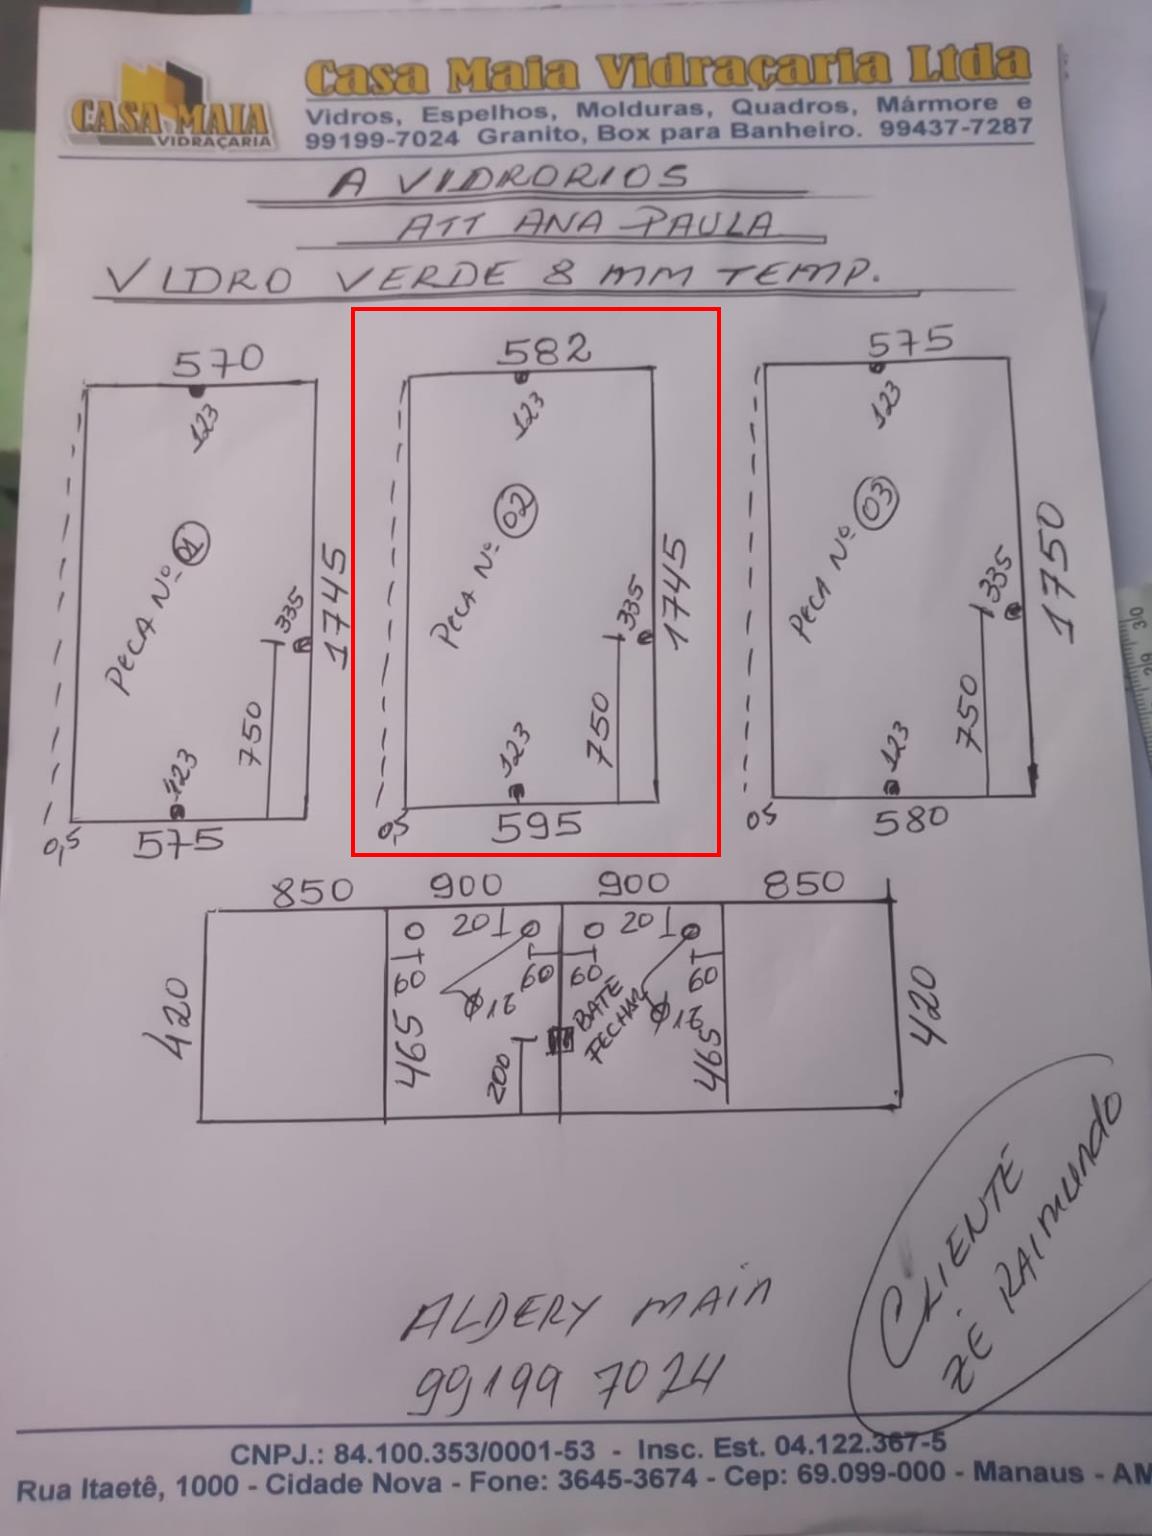 CASA MAIA
VIDRAÇARIA
Casa Maia Vidraçaria Ltda
Vidros, Espelhos, Molduras, Quadros, Mármore e
99199-7024 Granito, Box para Banheiro. 99437-7287
A VIDRORIOS
ATT ANA PAULA
VIDRO VERDE 8 MM TEMP.
570
123
PECA Nº 01
335
1745
750
123
0,5
575
582
123
PECA Nº 02
335
1745
750
123
0,5
595
575
123
PECA Nº 03
335
1750
750
123
05
580
850 900 900 850
201 201
60 60 60 60
420 465 Ø12 BATE Ø12 465 420
FECHA
200
CLIENTE
ZÉ RAIMUNDO
ALDERY MAIA
99199 7024
CNPJ.: 84.100.353/0001-53 - Insc. Est. 04.122.367-5
Rua Itaetê, 1000 - Cidade Nova - Fone: 3645-3674 - Cep: 69.099-000 - Manaus - AM
30